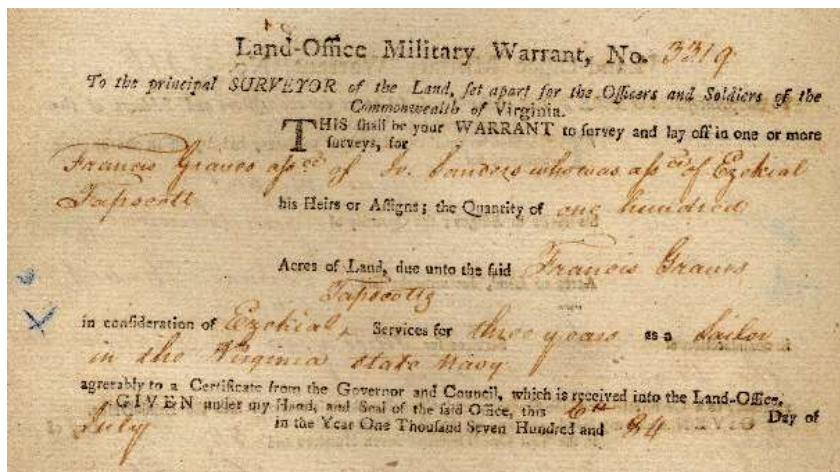 Land-Office Military Warrant, No. 3319
To the principal SURVEYOR of the Land, set apart for the Officers and Soldiers of the
Commonwealth of Virginia.
THIS shall be your WARRANT to survey and lay off in one or more
surveys, for
Francis Graves assee of Jo. Sanders who was assee of Ezekial
Tapscott his Heirs or Assigns; the Quantity of one hundred
Acres of Land, due unto the said Francis Graves
Tapscotts
in consideration of Ezekial Services for three years as a Sailor
in the Virginia state Navy
agreeably to a Certificate from the Governor and Council, which is received into the Land-Office.
GIVEN under my Hand, and Seal of the said Office, this 6th Day of
July in the Year One Thousand Seven Hundred and 84